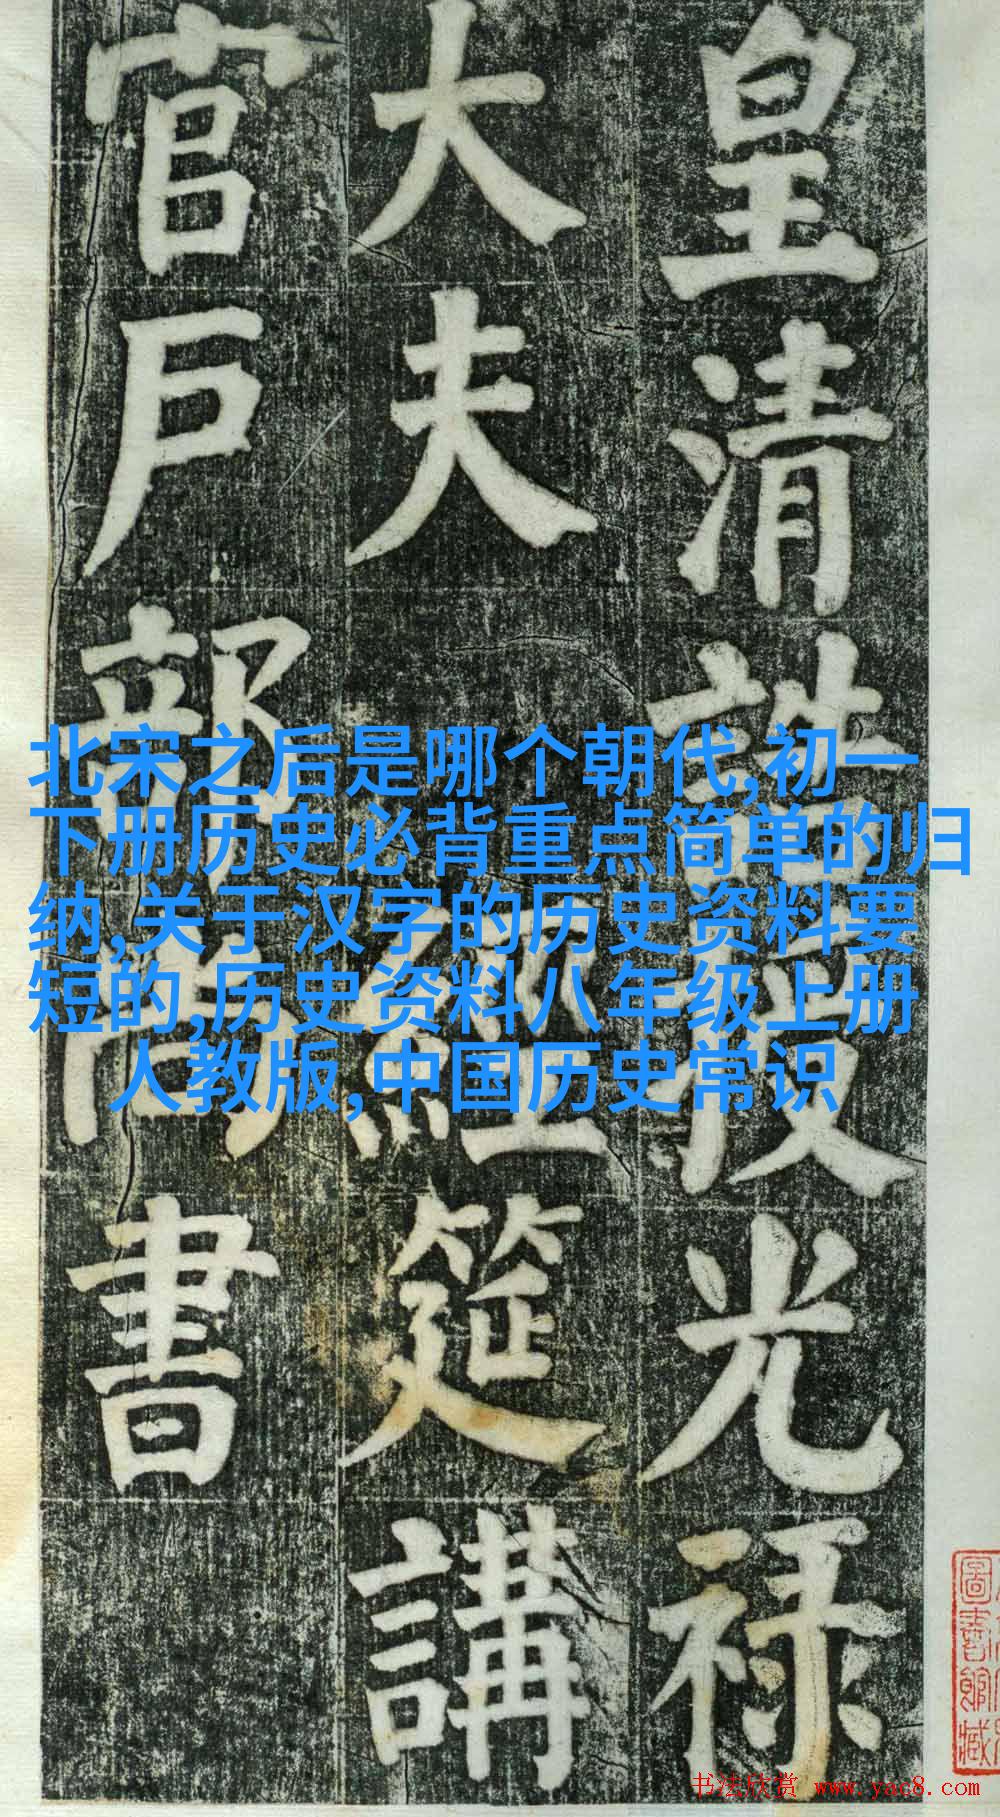 皇清誥授光祿
大夫經筵講
官戶部尚書
北宋之后是哪个朝代,初一
下册历史必背重点简单的归
纳,关于汉字的历史资料要
短的,历史资料八年级上册
人教版,中国历史常识
圖書館藏
书法欣赏 www.yac8.com